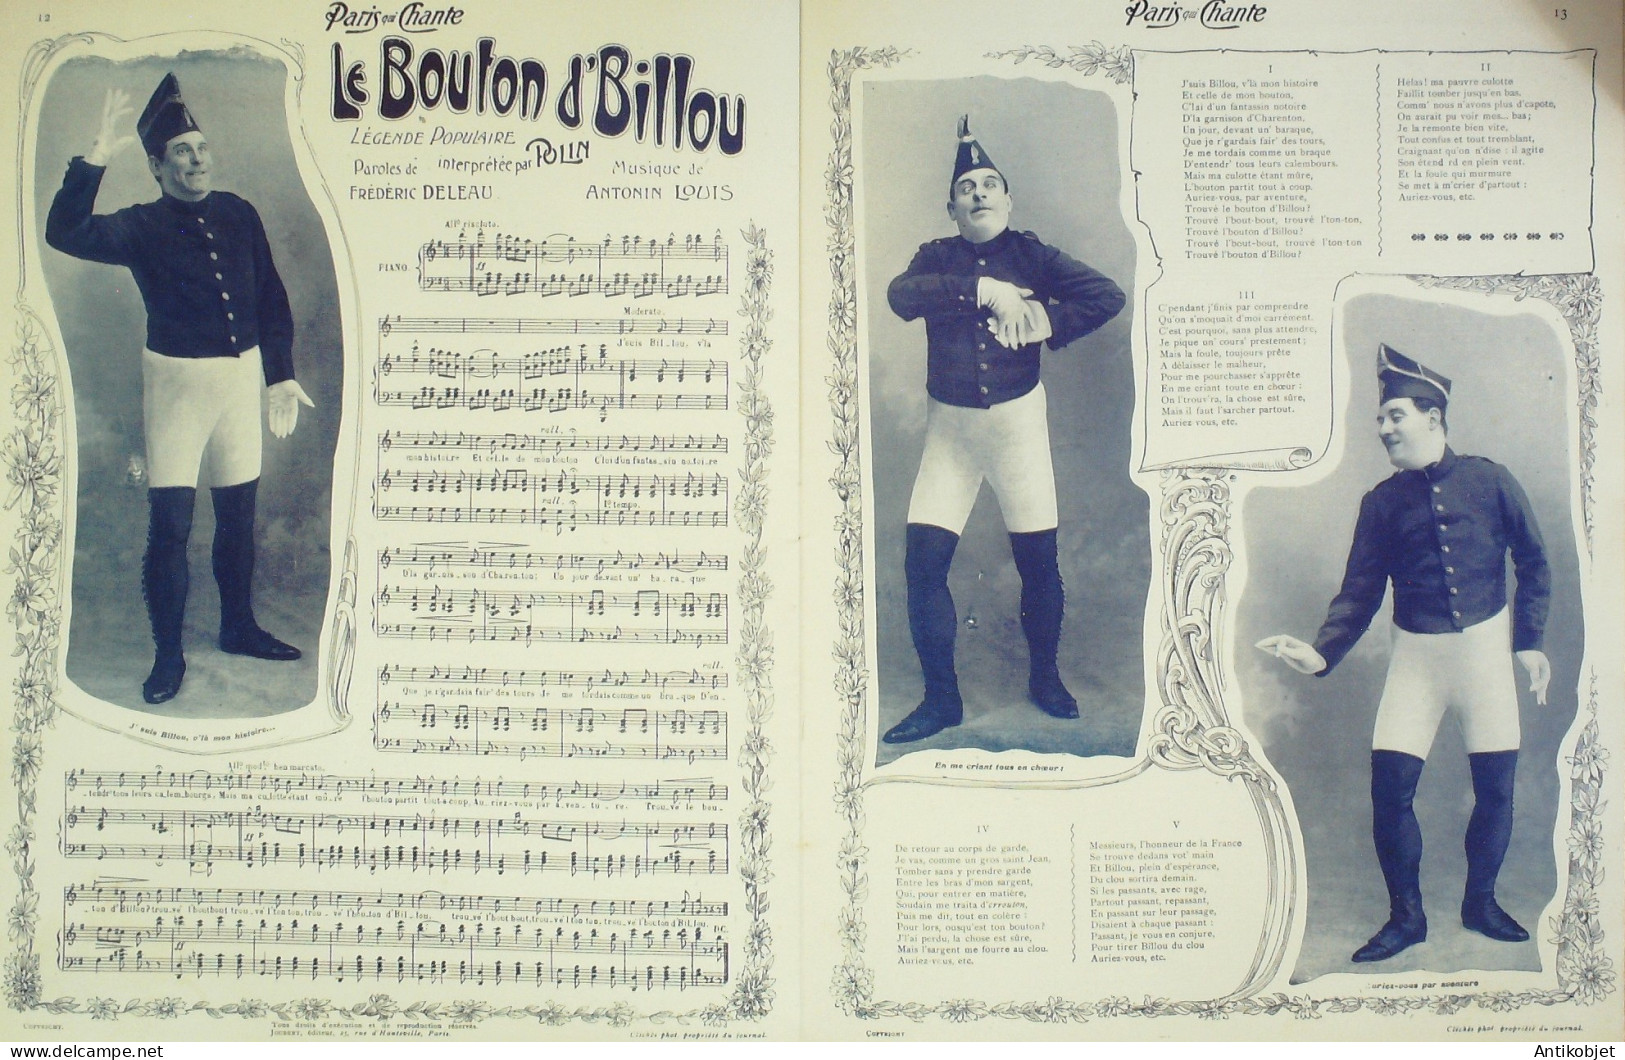 12
Paris qui Chante
Le Bouton d'Billou
LÉGENDE POPULAIRE
interprétée par POLIN
Paroles de
FRÉDÉRIC DELEAU
Musique de
ANTONIN LOUIS
All° risoluto.
PIANO.
Moderato.
J'suis Bil_lou, v'là
rall.
mon histoi_re Et cel_le de mon bouton C'lui d'un fantas_sin no_toi_re
rall.
1° tempo.
D'la gar_nis_son d'Charen_ton; Un jour de_vant un' ba_ra_que
rall.
Que je r'gardais fair' des tours Je me tordais comme un Bra_que D'en_
ben marcato.
_tendr' tous leurs ca_lem_bourgs. Mais ma culotte étant mû_re l'bouton partit tout à coup. Au_riez-vous par a_ven_tu_re. Trou_vé le bou_
ton d'Billou? trou_vé l'bout bout, trou_vé l'ton ton, trou_vé l'bou_ton d'Bil_lou. trou_vé l'bout bout, trou_vé l'ton ton, trou_vé l'bouton d'Billou. D.C.
J'suis Billou, v'là mon histoire...
COPYRIGHT.
Tous droits d'exécution et de reproduction réservés.
JOUBERT, éditeur, 25, rue d'Hauteville, Paris.
Clichés phot. propriété du journal.
Paris qui Chante
13
I
J'suis Billou, v'là mon histoire
Et celle de mon bouton,
C'lai d'un fantassin notoire
D'la garnison d'Charenton.
Un jour, devant un' baraque,
Que je r'gardais fair' des tours,
Je me tordais comme un braque
D'entendr' tous leurs calembours.
Mais ma culotte étant mûre,
L'bouton partit tout à coup.
Auriez-vous, par aventure,
Trouvé le bouton d'Billou?
Trouvé l'bout-bout, trouvé l'ton-ton,
Trouvé l'bouton d'Billou?
Trouvé l'bout-bout, trouvé l'ton-ton
Trouvé l'bouton d'Billou?
II
Hélas! ma pauvre culotte
Faillit tomber jusqu'en bas,
Comm' nous n'avons plus d'capote,
On aurait pu voir mes... bas;
Je la remonte bien vite,
Tout confus et tout tremblant,
Craignant qu'on n'dise : il agite
Son étend rd en plein vent.
Et la foule qui murmure
Se met à m'crier d'partout :
Auriez-vous, etc.
III
C'pendant j'finis par comprendre
Qu'on s'moquait d'moi carrément.
C'est pourquoi, sans plus attendre,
Je pique un' cours' prestement;
Mais la foule, toujours prête
A délaisser le malheur,
Pour me pourchasser s'apprête
En me criant toute en chœur :
On l'trouv'ra, la chose est sûre,
Mais il faut l'sarcher partout.
Auriez vous, etc.
En me criant tous en chœur :
IV
De retour au corps de garde,
Je vas, comme un gros saint Jean,
Tomber sans y prendre garde
Entre les bras d'mon sargent,
Qui, pour entrer en matière,
Soudain me traita d'crrouton,
Puis me dit, tout en colère :
Pour lors, ousqu'est ton bouton?
J'l'ai perdu, la chose est sûre,
Mais l'sargent me fourre au clou.
Auriez-vous, etc.
V
Messieurs, l'honneur de la France
Se trouve dedans vot' main
Et Billou, plein d'espérance,
Du clou sortira demain.
Si les passants, avec rage,
Partout passant, repassant,
En passant sur leur passage,
Disaient à chaque passant :
Passant, je vous en conjure,
Pour tirer Billou du clou
Auriez-vous, etc.
uriez-vous par aventure
COPYRIGHT
Clichés phot. propriété du journal.
Antikobjet